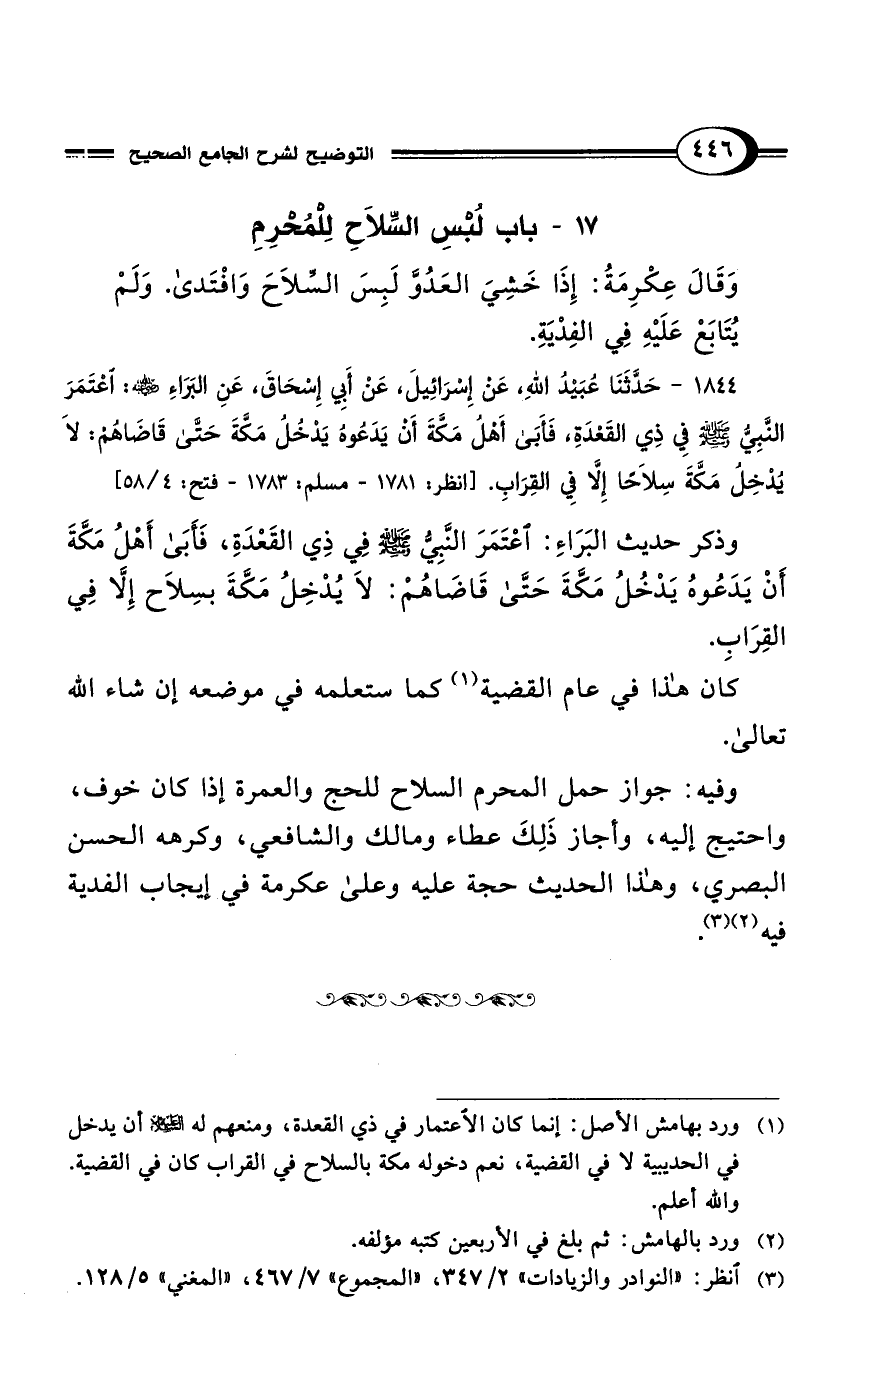 ٤٤٦ التوضيح لشرح الجامع الصحيح
١٧ - باب لُبْسِ السِّلاَحِ لِلْمُحْرِمِ
وَقَالَ عِكْرِمَةُ: إِذَا خَشِيَ العَدُوَّ لَبِسَ السِّلاَحَ وَافْتَدىٰ. وَلَمْ
يُتَابَعْ عَلَيْهِ فِي الفِدْيَةِ.
١٨٤٤ - حَدَّثَنَا عُبَيْدُ اللهِ، عَنْ إِسْرَائِيلَ، عَنْ أَبِي إِسْحَاقَ، عَنِ البَرَاءِ ﵁: ٱعْتَمَرَ
النَّبِيُّ ﷺ فِي ذِي القَعْدَةِ، فَأَبَىٰ أَهْلُ مَكَّةَ أَنْ يَدَعُوهُ يَدْخُلُ مَكَّةَ حَتَّىٰ قَاضَاهُمْ: لاَ
يُدْخِلُ مَكَّةَ سِلاَحًا إِلَّا فِي القِرَابِ. [انظر: ١٧٨١ - مسلم: ١٧٨٣ - فتح: ٤/ ٥٨]
وذكر حديث البَرَاءِ: ٱعْتَمَرَ النَّبِيُّ ﷺ فِي ذِي القَعْدَةِ، فَأَبَىٰ أَهْلُ مَكَّةَ
أَنْ يَدَعُوهُ يَدْخُلُ مَكَّةَ حَتَّىٰ قَاضَاهُمْ: لاَ يُدْخِلُ مَكَّةَ بسِلاَح إِلَّا فِي
القِرَابِ.
كان هذا في عام القضية(١) كما ستعلمه في موضعه إن شاء الله
تعالىٰ.
وفيه: جواز حمل المحرم السلاح للحج والعمرة إذا كان خوف،
واحتيج إليه، وأجاز ذَلِكَ عطاء ومالك والشافعي، وكرهه الحسن
البصري، وهذا الحديث حجة عليه وعلىٰ عكرمة في إيجاب الفدية
فيه(٢)(٣).
(١) ورد بهامش الأصل: إنما كان الٱعتمار في ذي القعدة، ومنعهم له ﷺ أن يدخل
في الحديبية لا في القضية، نعم دخوله مكة بالسلاح في القراب كان في القضية.
والله أعلم.
(٢) ورد بالهامش: ثم بلغ في الأربعين كتبه مؤلفه.
(٣) ٱنظر: «النوادر والزيادات» ٢/ ٣٤٧، «المجموع» ٧/ ٤٦٧، «المغني» ٥/ ١٢٨.